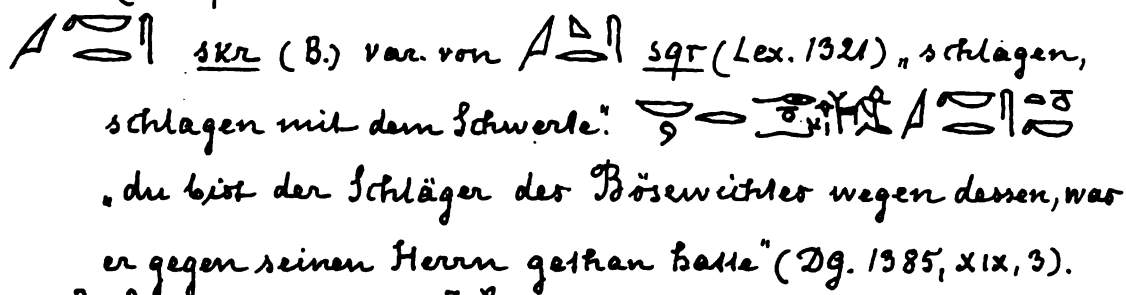 skr (B.) var. von sqr (Lex. 1321) „schlagen,
schlagen mit dem Schwerte“.
„du bist der Schläger des Bösewichtes wegen dessen, was
er gegen seinen Herrn gethan hatte“ (Dg. 1385, XIX, 3).